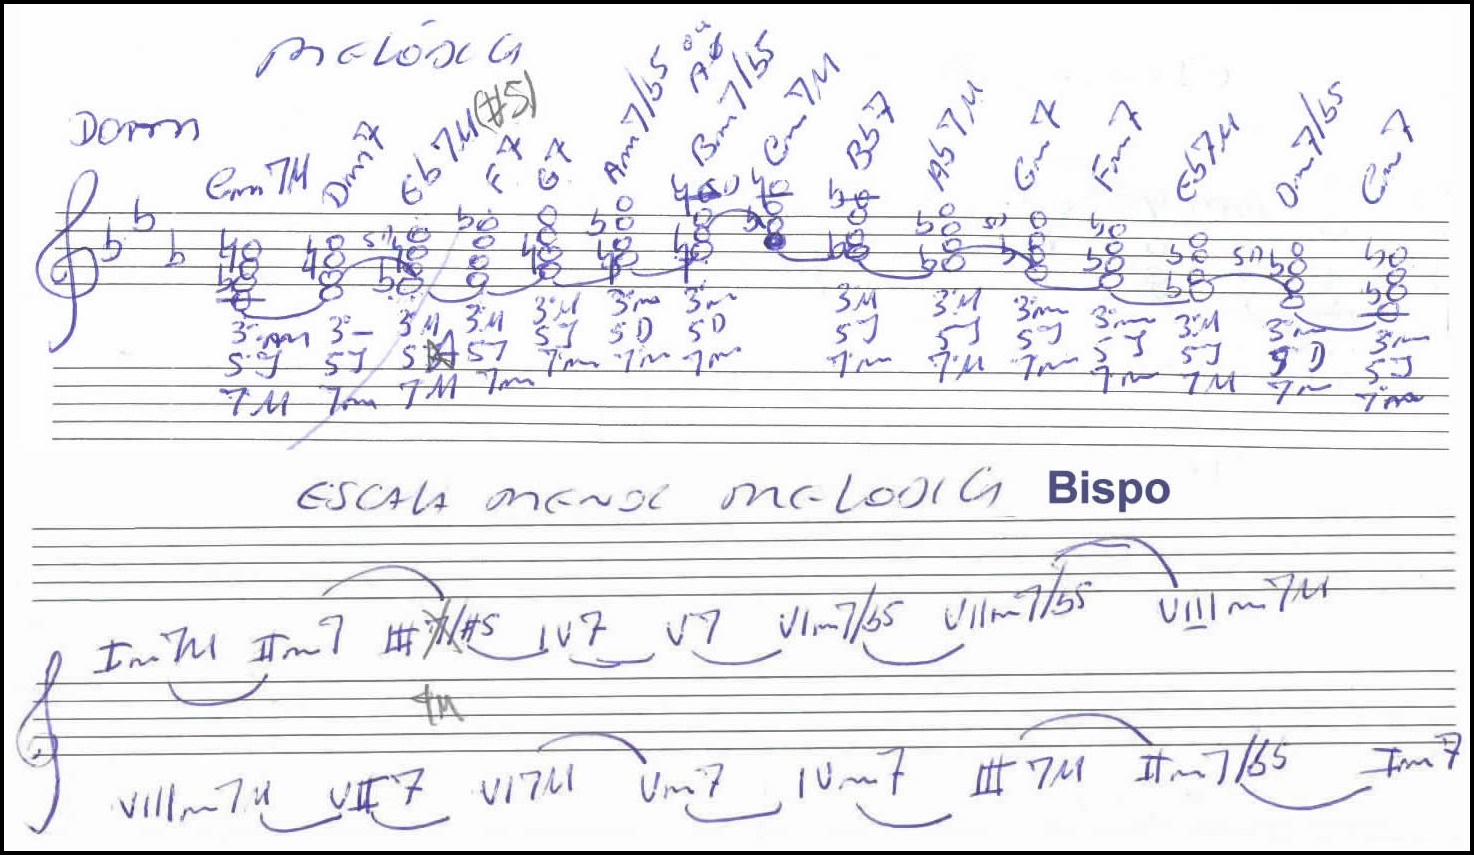 MELÓDICA
DÓmm
Cm7M Dm7 Eb7M(#5) F7 G7 Am7/b5 ou Aø Bm7/b5 Cm7M Bb7 Ab7M Gm7 Fm7 Eb7M Dm7/b5 Cm7
SD SD SD SD
3ªm 3ª 3ªM 3ªM 3ªM 3ªm 3ªm 3ªM 3ªM 3ªm 3ªm 3ªM 3ªm 3ªm
5J 5J 5A 5J 5J 5D 5D 5J 5J 5J 5J 5J 5D 5J
7M 7m 7M 7m 7m 7m 7m 7m 7M 7m 7m 7M 7m 7m
ESCALA MENOR MELODICA Bispo
Im7M IIm7 III /#5 IV7 V7 VIm7/b5 VIIm7/b5 VIIIm7M
7M
VIIIm7M VII7 VI7M Vm7 IVm7 III7M IIm7/b5 Im7